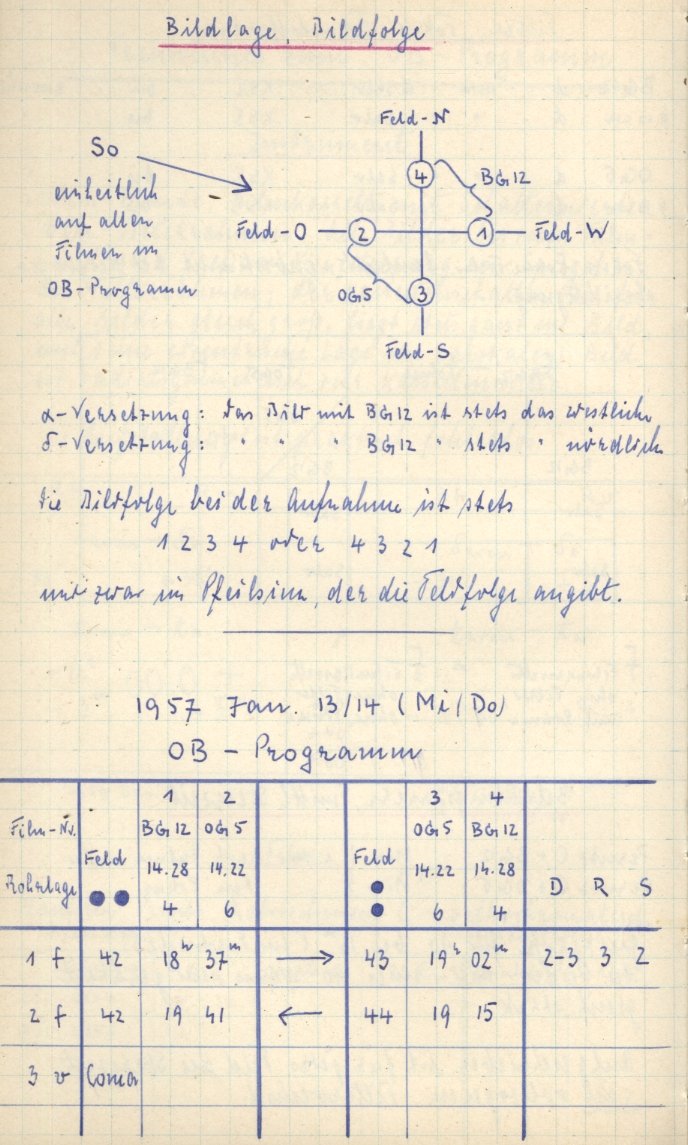 Bildlage, Bildfolge
So
einheitlich
auf allen
Filmen im
OB-Programm
Feld-N
4
BG12
Feld-O
2
1
Feld-W
OG5
3
Feld-S
α-Versetzung: Das Bild mit BG12 ist stets das westliche
δ-Versetzung: " " " BG12 " stets " nördlich
Die Bildfolge bei der Aufnahme ist stets
1 2 3 4 oder 4 3 2 1
und zwar im Pfeilsinn, der die Feldfolge angibt.
1957 Jan. 13/14 (Mi/Do)
OB - Programm
Film-Nr. Rohrlage Feld 1 BG12 14.28 4 2 OG5 14.22 6 Feld 3 OG5 14.22 6 4 BG12 14.28 4 D R S
1 f 42 18h 37m → 43 19h 02m 2-3 3 2
2 f 42 19 41 ← 44 19 15
3 v Coma